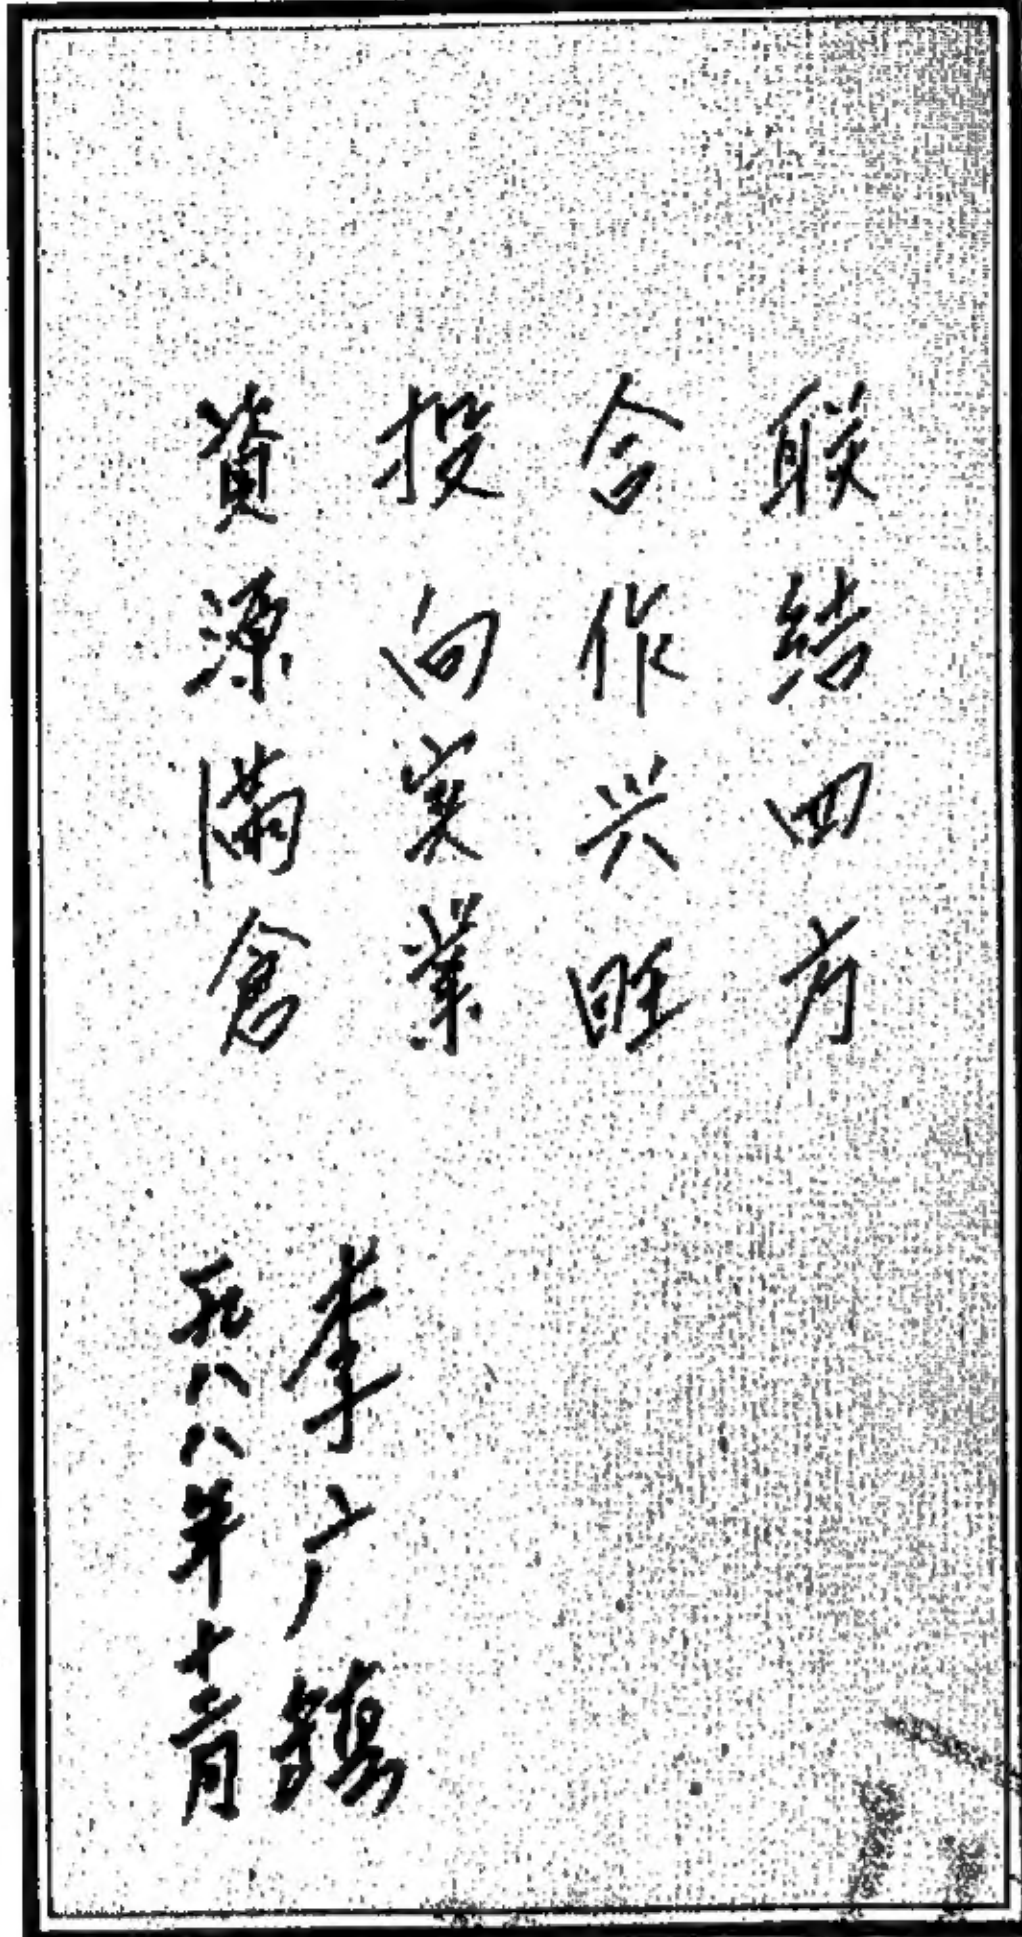 联结四方
合作兴旺
投向实業
資源滿倉
李广镇
一九八八年十二月